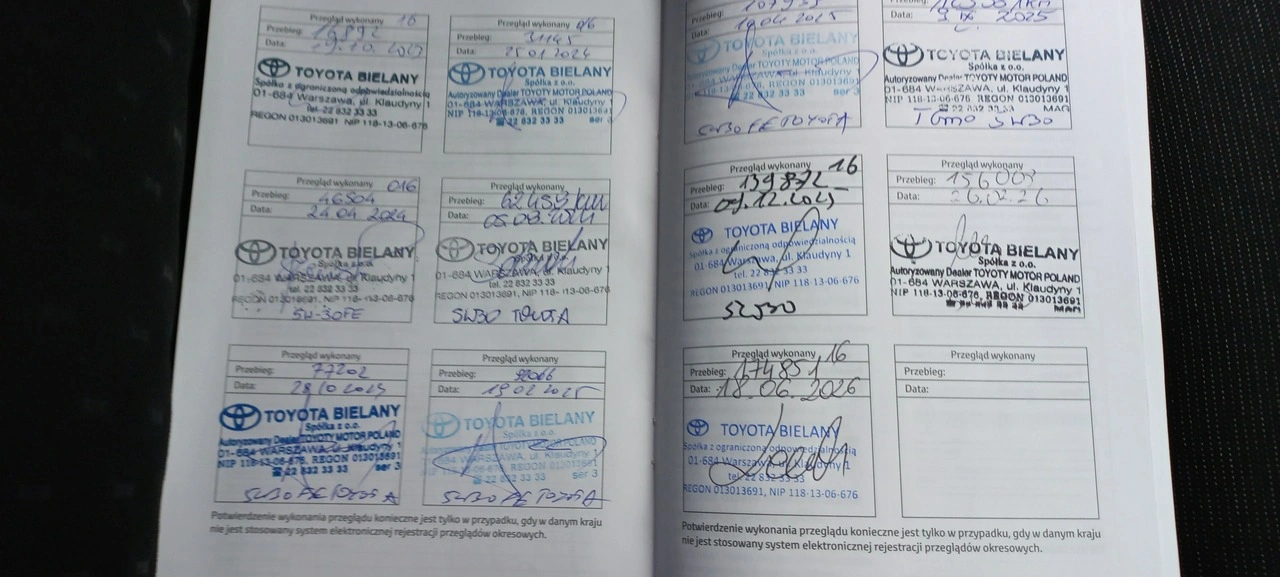 Przegląd wykonany 16
Przebieg: 16892
Data: 19.10.2023
TOYOTA BIELANY
Spółka z ograniczoną odpowiedzialnością
01-684 Warszawa, ul. Klaudyny 1
tel. 22 832 33 33
REGON 013013691 NIP 118-13-06-676
Przegląd wykonany 016
Przebieg: 31145
Data: 25 01 2024
TOYOTA BIELANY
Spółka z o.o.
Autoryzowany Dealer TOYOTY MOTOR POLAND
01-684 WARSZAWA, ul. Klaudyny 1
NIP 118-13-06-676, REGON 013013691
☎22 832 33 33 ser 3
Przegląd wykonany 016
Przebieg: 46504
Data: 24 04 2024
TOYOTA BIELANY
Spółka z o.o.
01-684 WARSZAWA, ul. Klaudyny 1
tel. 22 832 33 33
REGON 013013691, NIP 118-13-06-676
5W-30FE
Przegląd wykonany
Przebieg: 62459 km
Data: 05.08.2024
TOYOTA BIELANY
01-684 WARSZAWA, ul. Klaudyny 1
tel. 22 832 33 33
REGON 013013691, NIP 118-13-06-676
5W30 TOYOTA
Przegląd wykonany
Przebieg: 77202
Data:
TOYOTA BIELANY
Spółka z o.o.
Autoryzowany Dealer TOYOTY MOTOR POLAND
01-684 WARSZAWA, ul. Klaudyny 1
NIP 118-13-06-676, REGON 013013691
☎22 832 33 33 ser 3
5W30 FE TOYOTA
Przegląd wykonany
Przebieg: 92066
Data: 19 02 2025
TOYOTA BIELANY
Spółka z o.o.
Autoryzowany Dealer TOYOTY MOTOR POLAND
01-684 WARSZAWA, ul. Klaudyny 1
NIP 118-13-06-676, REGON 013013691
☎22 832 33 33 ser 3
5W30 FE TOYOTA
Potwierdzenie wykonania przeglądu konieczne jest tylko w przypadku, gdy w danym kraju
nie jest stosowany system elektronicznej rejestracji przeglądów okresowych.
Przebieg: 107935
Data: 19 04 2025
TOYOTA BIELANY
Spółka z o.o.
Autoryzowany Dealer TOYOTY MOTOR POLAND
01-684 WARSZAWA, ul. Klaudyny 1
NIP 118-13-06-676, REGON 013013691
☎22 832 33 33 ser 3
5W30 FE TOYOTA
Data: 3 IX 2025
TOYOTA BIELANY
Spółka z o.o.
Autoryzowany Dealer TOYOTY MOTOR POLAND
01-684 WARSZAWA, ul. Klaudyny 1
NIP 118-13-06-676, REGON 013013691
☎22 832 33 33 MAR
TGMO 5W30
Przegląd wykonany 16
Przebieg: 139872
Data: 09.12.2025
TOYOTA BIELANY
Spółka z ograniczoną odpowiedzialnością
01-684 Warszawa, ul. Klaudyny 1
tel. 22 832 33 33
REGON 013013691, NIP 118-13-06-676
5W30
Przegląd wykonany
Przebieg: 156008
Data: 26.02.26
TOYOTA BIELANY
Spółka z o.o.
Autoryzowany Dealer TOYOTY MOTOR POLAND
01-684 WARSZAWA, ul. Klaudyny 1
NIP 118-13-06-676, REGON 013013691
MAR
Przegląd wykonany 16
Przebieg: 174851
Data: 18.06.2026
TOYOTA BIELANY
Spółka z ograniczoną odpowiedzialnością
01-684 Warszawa, ul. Klaudyny 1
tel. 22 832 33 33
REGON 013013691, NIP 118-13-06-676
Przegląd wykonany
Przebieg:
Data:
Potwierdzenie wykonania przeglądu konieczne jest tylko w przypadku, gdy w danym kraju
nie jest stosowany system elektronicznej rejestracji przeglądów okresowych.